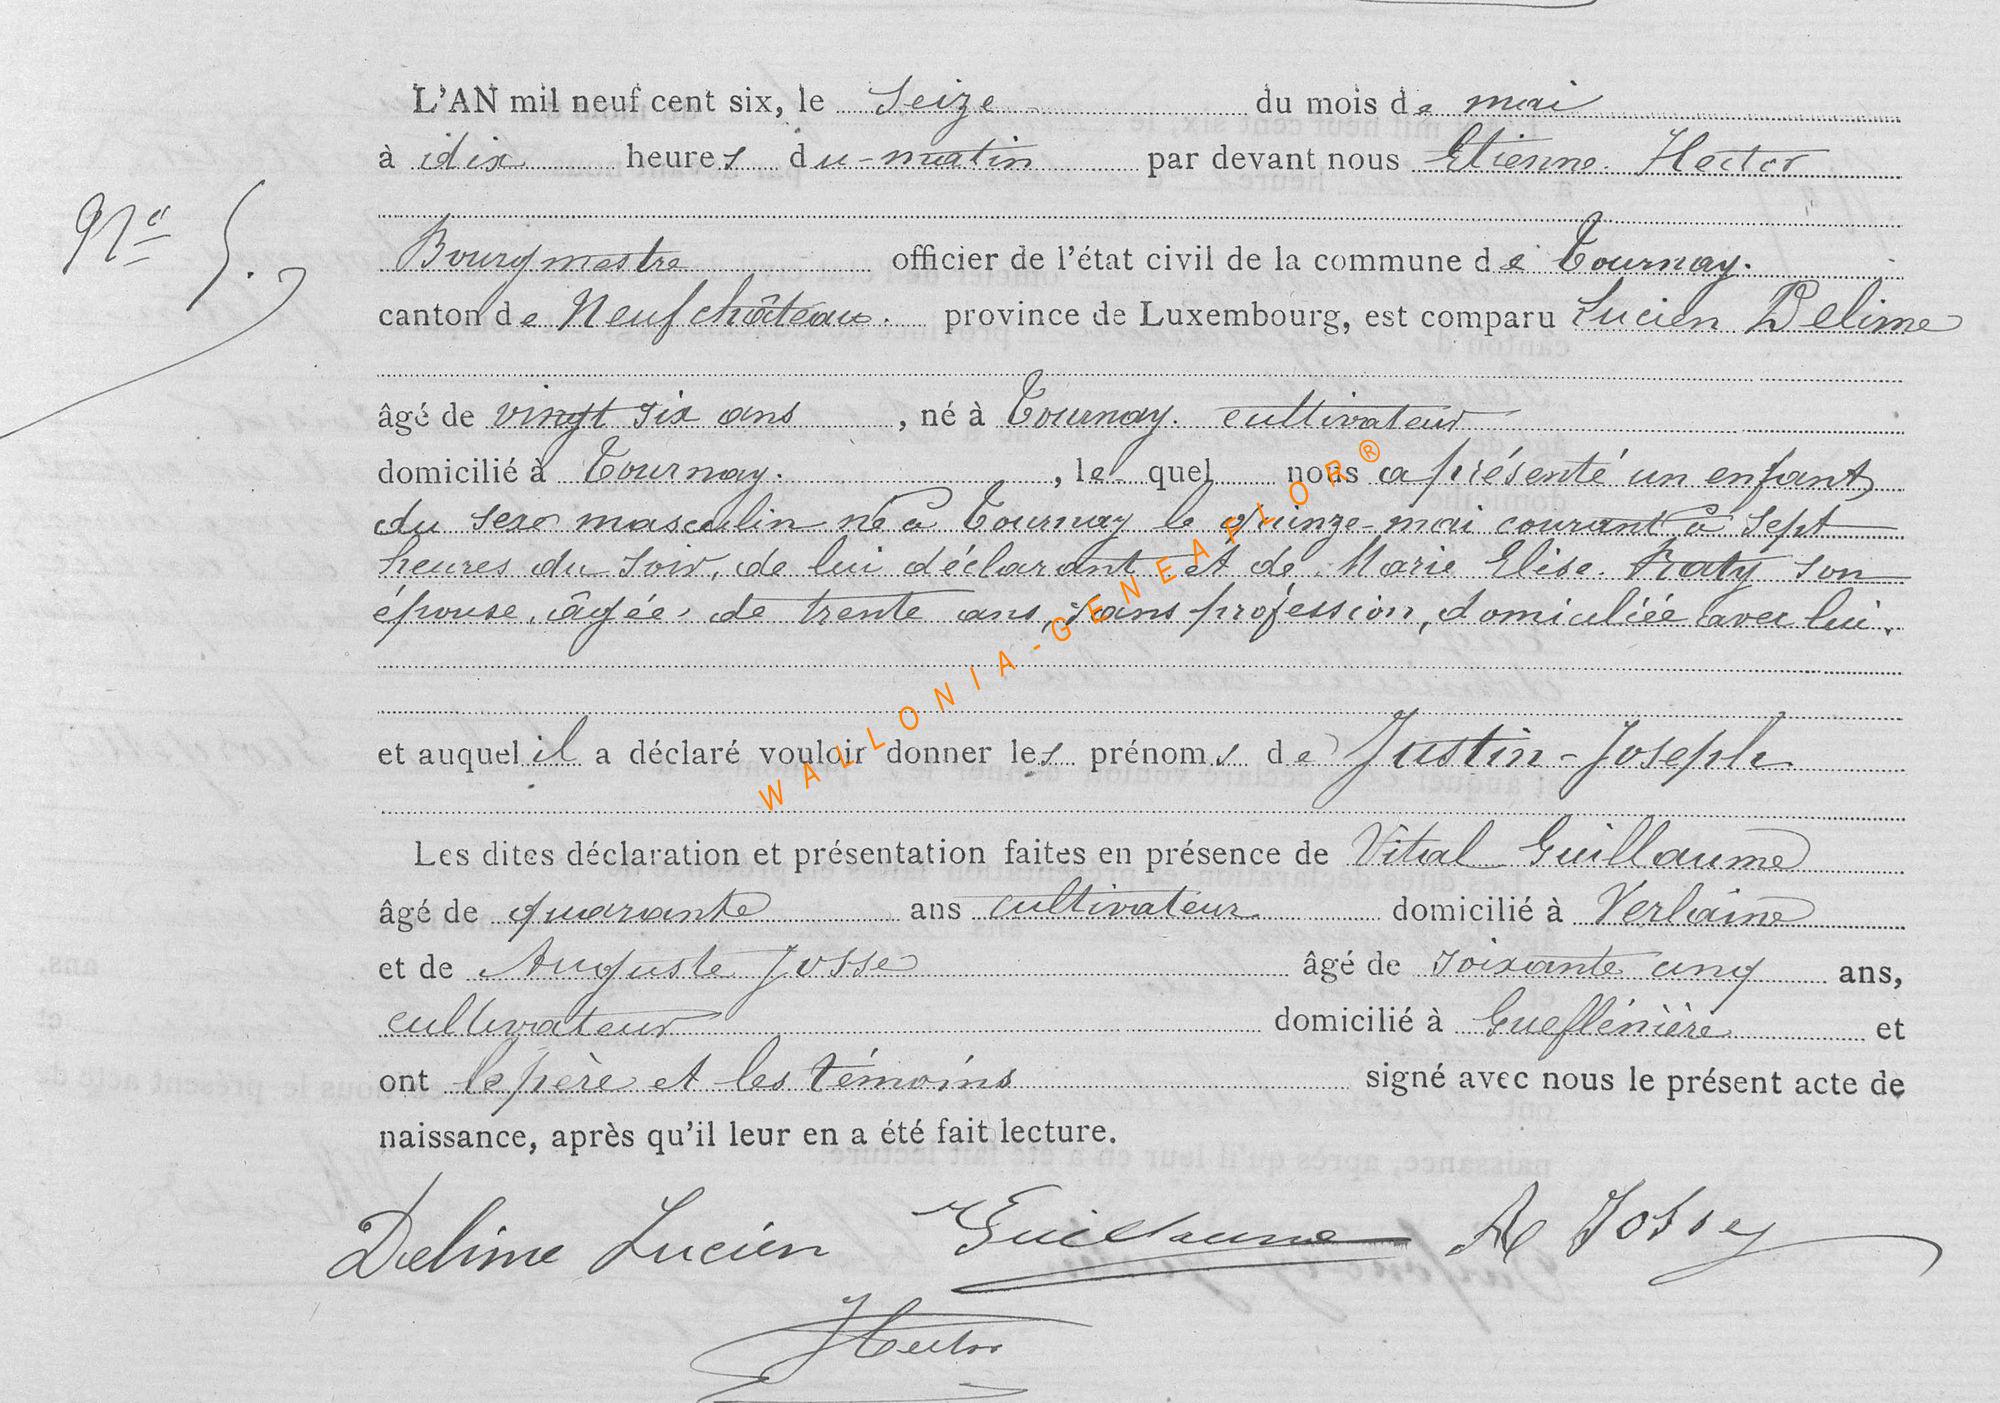 L'AN mil neuf cent six, le seize du mois de mai
à dix heures du matin par devant nous Etienne Hector
N° 5.
Bourgmestre officier de l'état civil de la commune de Tournay.
canton de Neufchâteau. province de Luxembourg, est comparu Lucien Delime
âgé de vingt six ans, né à Tournay. cultivateur
domicilié à Tournay., lequel nous a présenté un enfant
du sexe masculin né à Tournay le quinze mai courant à sept
heures du soir, de lui déclarant et de Marie Elise Raty son
épouse, âgée de trente ans, sans profession, domiciliée avec lui.
et auquel il a déclaré vouloir donner les prénoms de Justin-Joseph
Les dites déclaration et présentation faites en présence de Vital Guillaume
âgé de quarante ans cultivateur domicilié à Verlaine
et de Auguste Josse âgé de soixante cinq ans,
cultivateur domicilié à et
ont le père et les témoins signé avec nous le présent acte de
naissance, après qu'il leur en a été fait lecture.
Delime Lucien Guillaume A Josse
Hector
WALLONIA-GENEAFLOR®